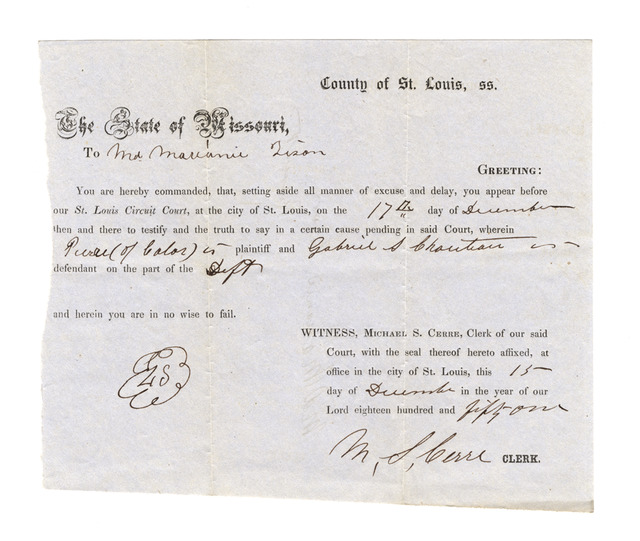 County of St. Louis, ss.
The State of Missouri,
To Md Marianne Tison
GREETING:
You are hereby commanded, that, setting aside all manner of excuse and delay, you appear before
our St. Louis Circuit Court, at the city of St. Louis, on the 17th day of December
then and there to testify and the truth to say in a certain cause pending in said Court, wherein
Pierre (of Color) is plaintiff and Gabriel S Chouteau is
defendant on the part of the Deft
and herein you are in no wise to fail.
WITNESS, MICHAEL S. CERRE, Clerk of our said
Court, with the seal thereof hereto affixed, at
office in the city of St. Louis, this 15
day of December in the year of our
Lord eighteen hundred and fifty one
LS
M, S, Cerre CLERK.